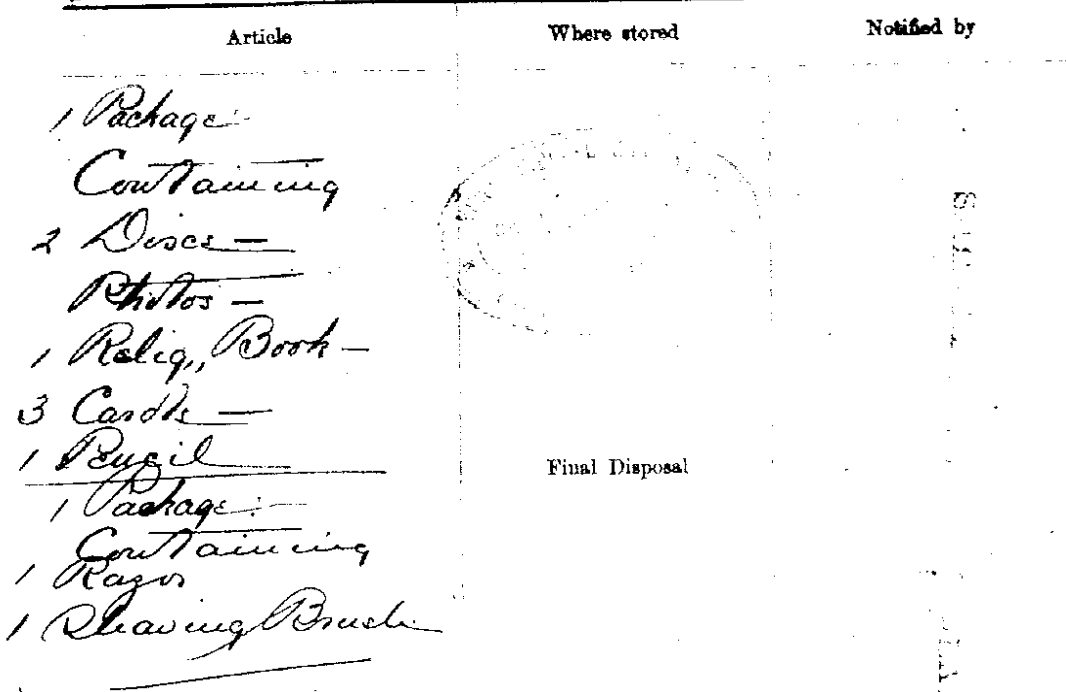 Article Where stored Notified by
1 Package:-
Containing
2 Discs —
Photos —
1 Relig,, Book —
3 Cards —
1 Pencil
Final Disposal
1 Package:—
Containing
1 Razor
1 Shaving Brush